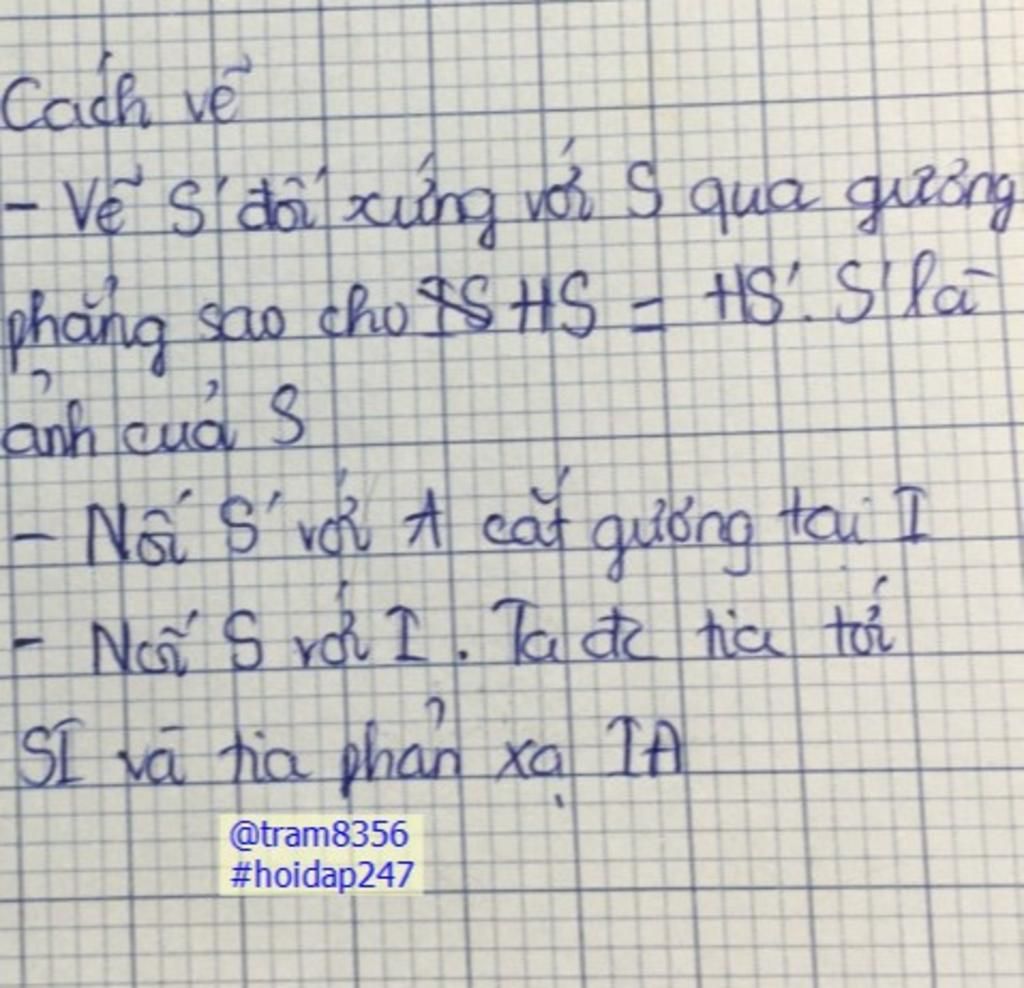 Cách vẽ
- Vẽ S' đối xứng với S qua gương
phẳng sao cho HS = HS'. S' là
ảnh của S
- Nối S' với A cắt gương tại I
- Nối S với I. Ta đc tia tới
SI và tia phản xạ IA
@tram8356
#hoidap247